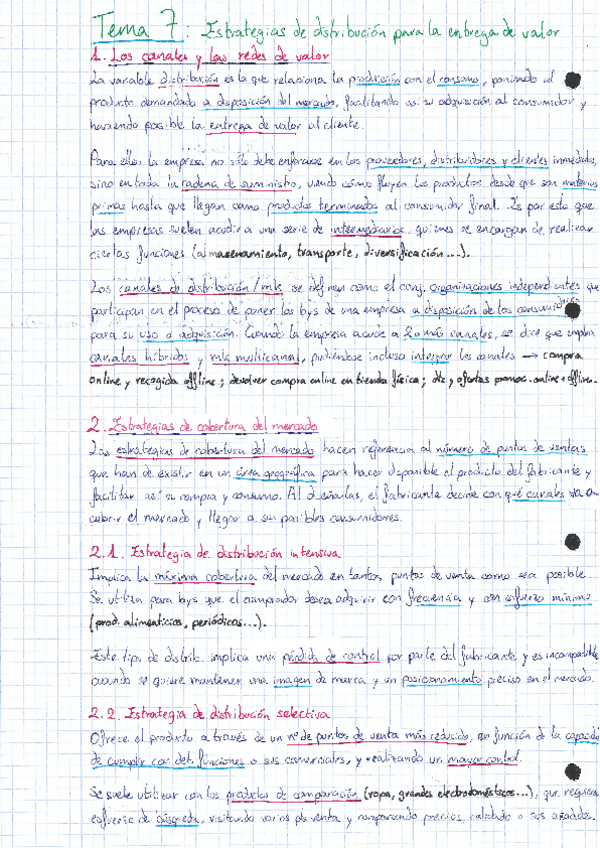 Tema 7: Estrategias de distribución para la entrega de valor
1. Los canales y las redes de valor
La variable distribución es la que relaciona la producción con el consumo, poniendo el
producto demandado a disposición del mercado, facilitando así su adquisición al consumidor y
haciendo posible la entrega de valor al cliente.
Para ello, la empresa no sólo debe enfocarse en los proveedores, distribuidores y clientes inmediatos,
sino en toda la cadena de suministro, viendo cómo fluyen los productos desde que son materias
primas hasta que llegan como productos terminados al consumidor final. Es por esto que
las empresas suelen acudir a una serie de intermediarios, quienes se encargan de realizar
ciertas funciones (almacenamiento, transporte, diversificación...).
Los canales de distribución/mk se definen como el conj. organizaciones independientes que
participan en el proceso de poner los bys de una empresa a disposición de los consumidores
para su uso o adquisición. Cuando la empresa acude a 2 o más canales, se dice que emplea
canales híbridos y mk multicanal, pudiéndose incluso integrar los canales → compra
online y recogida offline; devolver compra online en tienda física; dtz, ofertas promoc. online + offline.
2. Estrategias de cobertura del mercado
Las estrategias de cobertura del mercado hacen referencia al número de puntos de ventas
que han de existir en un área geográfica para hacer disponible el producto del fabricante y
facilitar así su compra y consumo. Al diseñarlas, el fabricante decide con qué canales va a
cubrir el mercado y llegar a sus posibles consumidores.
2.1. Estrategia de distribución intensiva
Implica la máxima cobertura del mercado en tantos puntos de venta como sea posible.
Se utiliza para bys que el comprador desea adquirir con frecuencia y con esfuerzo mínimo
(prod. alimenticios, periódicos...).
Este tipo de distrib. implica una pérdida de control por parte del fabricante y es incompatible
cuando se quiere mantener una imagen de marca y un posicionamiento preciso en el mercado.
2.2. Estrategia de distribución selectiva
Ofrece el producto a través de un nº de puntos de venta más reducido, en función de la capacidad
de cumplir con det. funciones o sus comerciales, y realizando un mayor control.
Se suele utilizar con los productos de comparación (ropa, grandes electrodomésticos...), que requieren
esfuerzo de búsqueda, visitando varios pts venta y comparando precios, calidad o sus acabados.